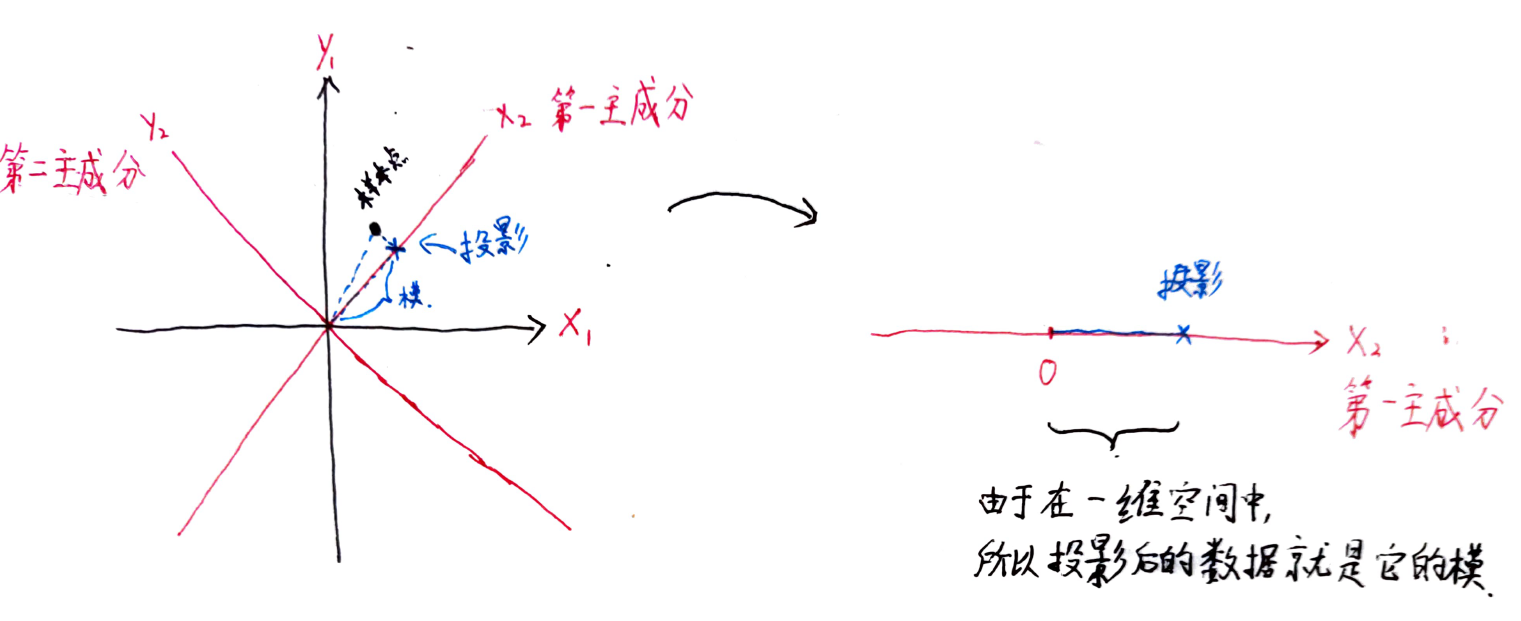 Y₁
X₂ 第一主成分
Y₂
第二主成分
样本点
投影
模.
X₁
投影
0
X₂
第一主成分
由于在一维空间中,
所以投影后的数据就是它的模.